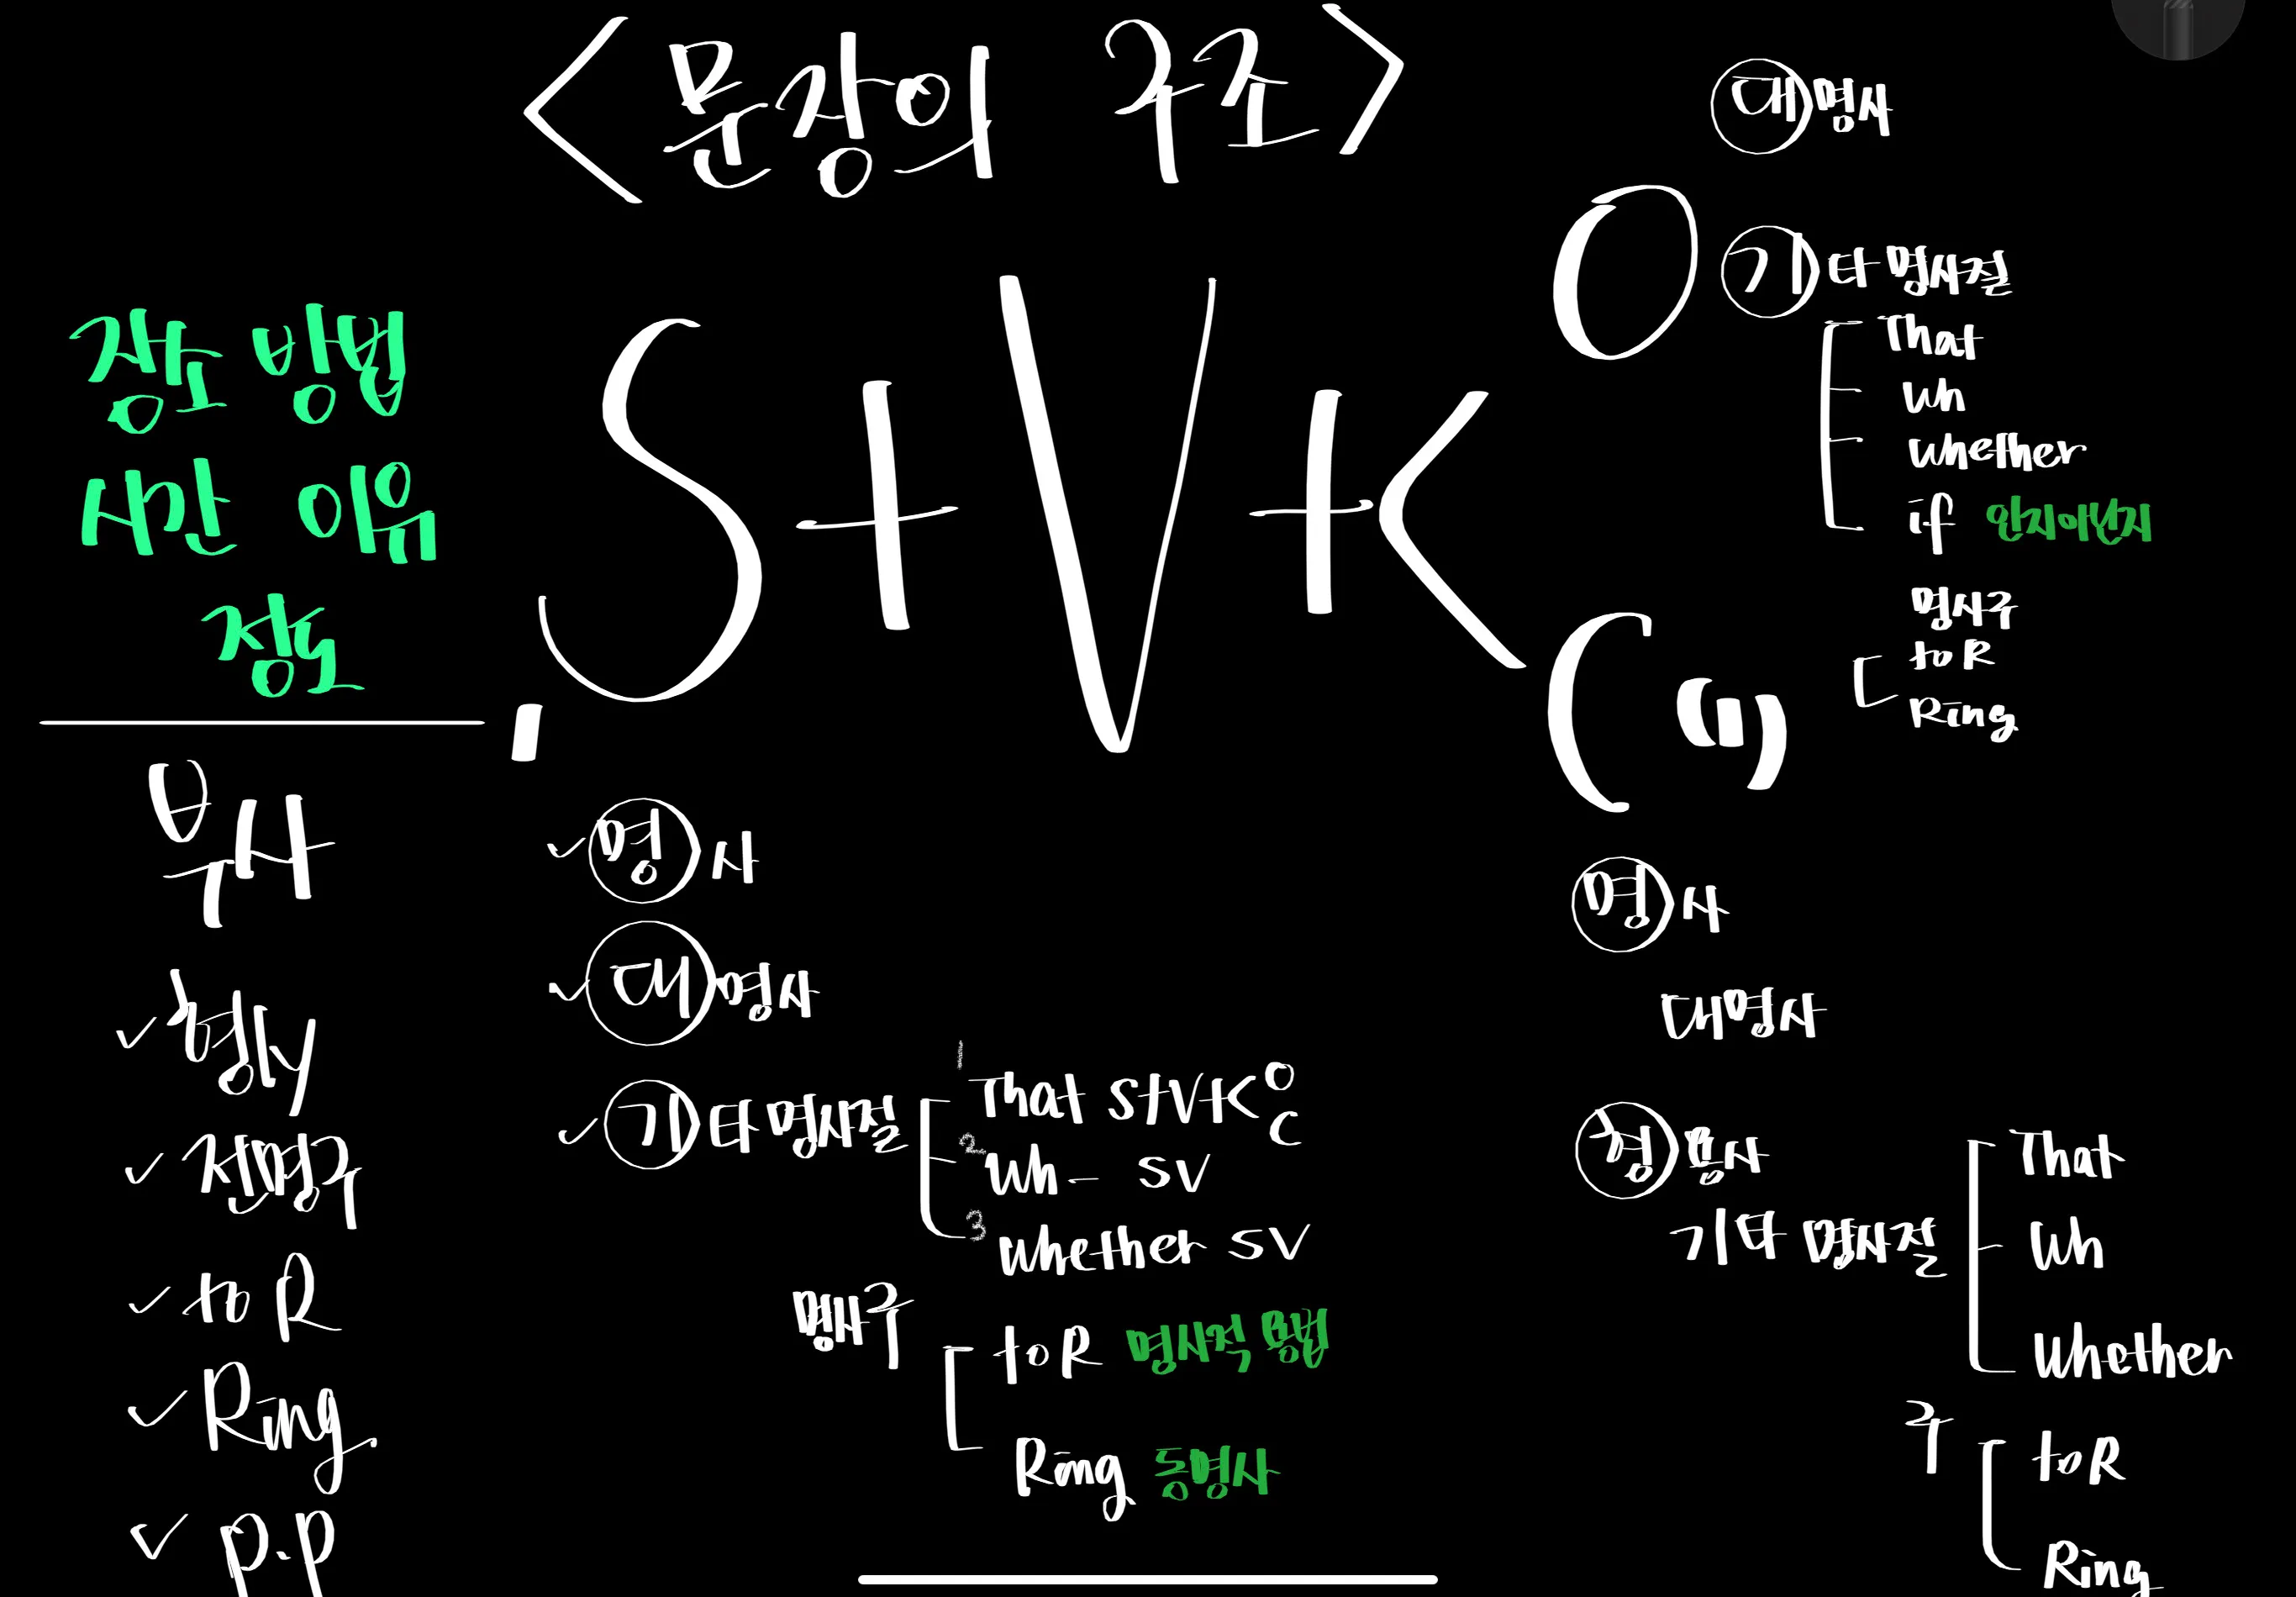 <문장의 구조>
장소 방법
시간 이유
정도
부사
✓ 형ly
✓ 전명구
✓ to R
✓ Ring
✓ p.p
, S + V + < O C (")
✓ 명사
✓ 대명사
✓ 기타 명사절
1 That S+V+< O C
2 Wh - SV
3 Whether SV
명사구
to R 명사적 용법
Ring 동명사
대명사
기타 명사절
That
Wh
Whether
if 인지아닌지
명사구
to R
Ring
명사
대명사
형용사
기타 명사절
That
Wh
Whether
구
to R
Ring